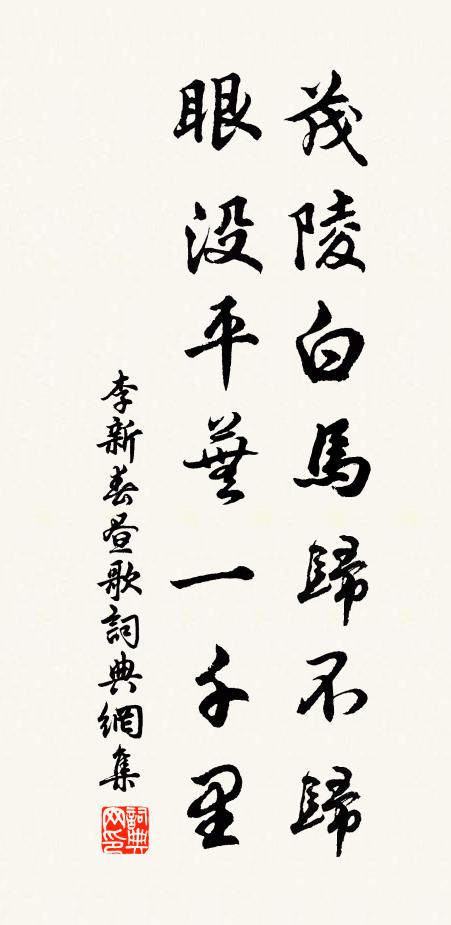 茂陵白馬歸不歸
眼没平蕪一千里
李新春晝歌詞典網集
詞典网印